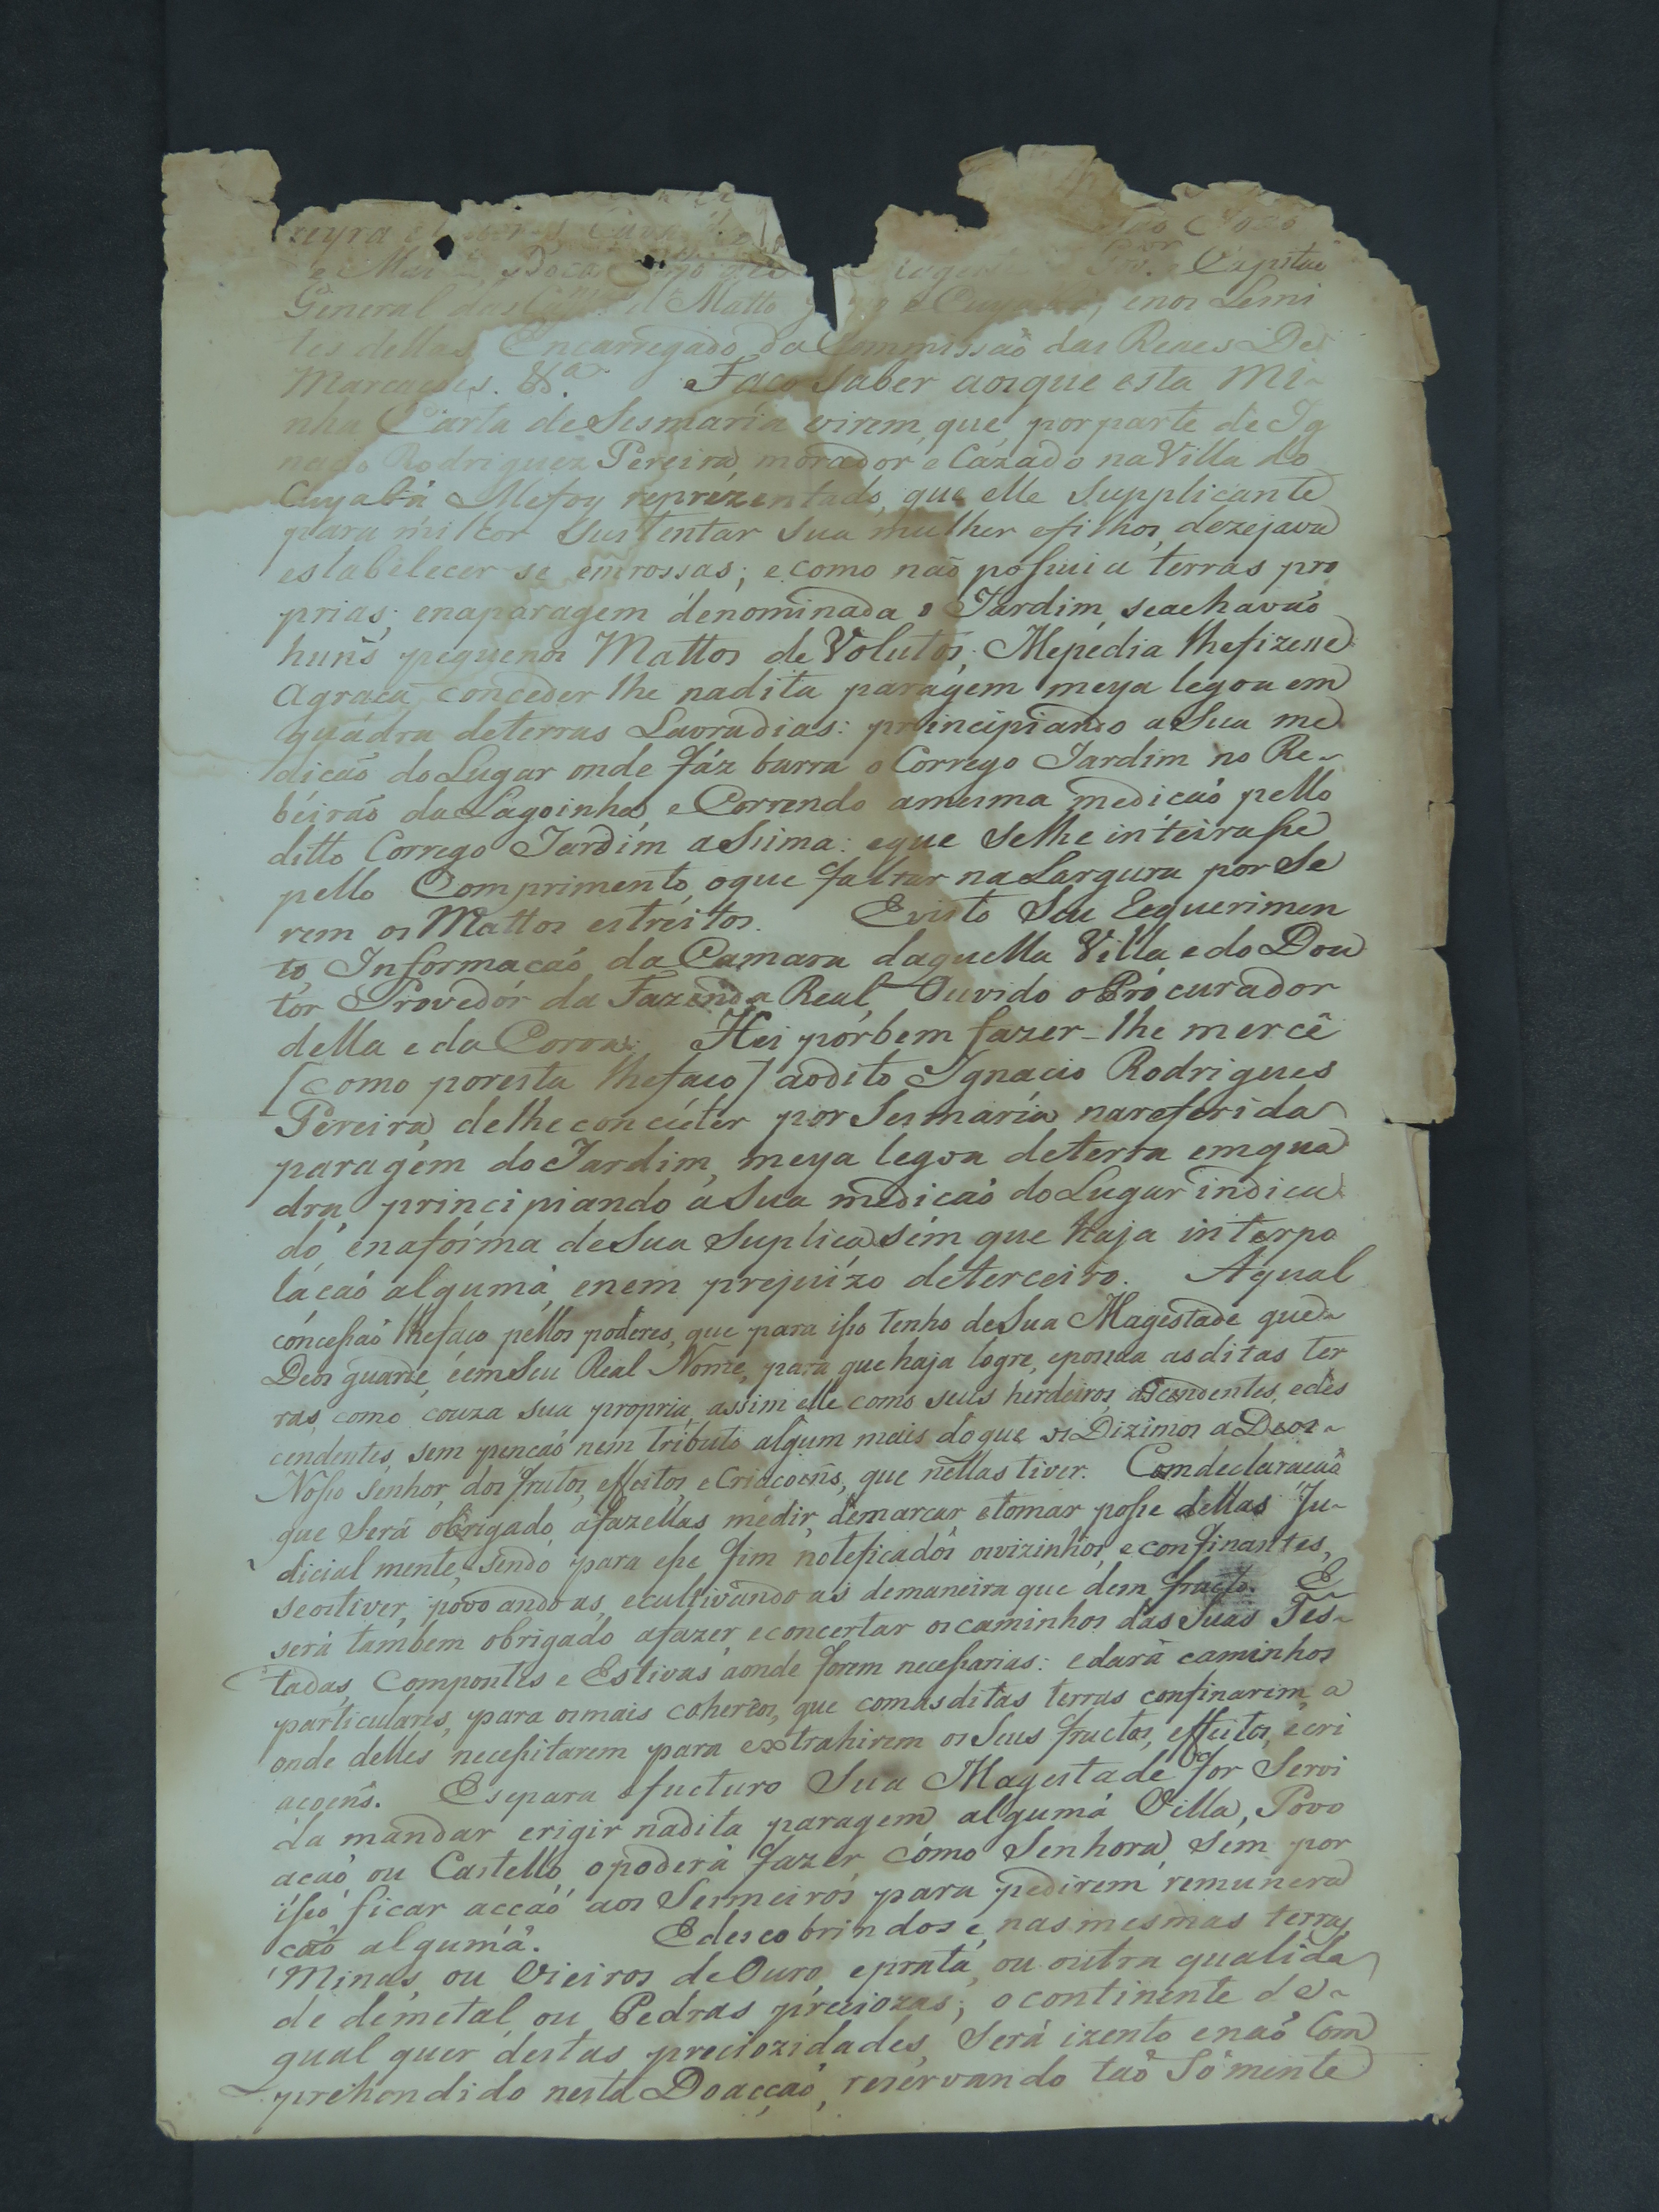 zeyra
e Capitaõ
General das Matto e Cuyabá, enos Lemi
tes dellas, Encarregado da Commissaõ das Reaes De
Marcaçoẽs. &ª. Faço saber aosque esta Mi-
nha Carta de Sesmaria virem, que porparte de Ig
nacio Rodriguez Pereira, morador e Cazado na Villa do
Cuyabá Mefoy reprézentado, que elle Supplicante
para milhor Sustentar Sua mulher efilhos, dezejava
establelecer-se emrossas; e como naõ possuia terras pro
prias; enaparagem denominada o Jardim, seachavaõ
huñs pequenos Mattos deVolutos; Mepedia lhefizesse
agraça conceder lhe nadita paragem meya legoa em
quádra deterras Lavradias: principiando aSua me
diçaõ doLugar onde fáz barra o Corrego Jardim no Re-
béiraõ daLagoinha, e Correndo amesma mediçaõ pello
ditto Corrego Jardim assima: eque selhe inteirasse
pello Comprimento, oque faltar naLargura por Se
rem os Mattos estreitos. Evisto Seu Requerimen
to, Informaçaõ da Camara daquella Villa e do Dou
tor Provedór da Fazenda Real, Ouvido oProcurador
della e da Coroa: Hei porbem fazer-lhe mercê
[como poresta lhefaço] aodito Ignacio Rodrigues
Pereira, delhe conceder por Sesmaria, nareferida
paragem doJardim, meya legoa deterra emqua
dra, principiando aSua mediçaõ doLugar indica
do, enafórma deSua Suplica, sém que haja interpo
laçaõ alguma, enem prejuízo deterceiro. Aqual
concessaõ lhefaço pellos poderes, que para isso tenho deSua Magestade que-
Deos guarde, éemSeu Real Nome, para que haja logre, epossua asditas ter
ras, como couza sua propria, assim elle como seus herdeiros, ascendentes, edes
cendentes, sem pençaõ nem tributo algum mais doque os Dizimos a Deos-
Nosso Senhor, dos frutos, effeitos, eCriaçoeñs, que nellas tiver. Comdeclaraçaõ
que Será obrigado, afazellas medir, demarcar etomar posse dellas Ju-
dicialmente, sendo para esse fim noteficados osvizinhos, econfinantes,
seostiver, povoandoas, ecultivandoas demaneira que dem fructo. E
será tambem obrigado afazer, econcertar oscaminhos das Suas Tes-
tadas, Compontes e Estivas aonde forem necessarias: edará caminhos
particulares, para osmais coherêos, que comasditas terras confinarem, a
onde delles necessitarem para extrahirem os Seus fructos, effeitos, ecri
açoeñs. Esepara ofucturo Sua Magestade for Servi
da mandar erigir nadita paragem alguma Villa, Povo
açaõ ou Castello, opoderá fazer cómo Senhora, Sem por
isso ficar acçaõ aos Sesmeiros para pedirem remunera
çaõ alguma. Edescobrindose, nasmesmas terras,
Minas, ou Vieiros deOuro, eprata, ou outra qualida
de demetal, ou Pedras preciozas; ocontinente de-
qual quer destas preciozidades, Será izento enaõ Com
prehendido nesta Doacçaõ, reservando taõ Sómente